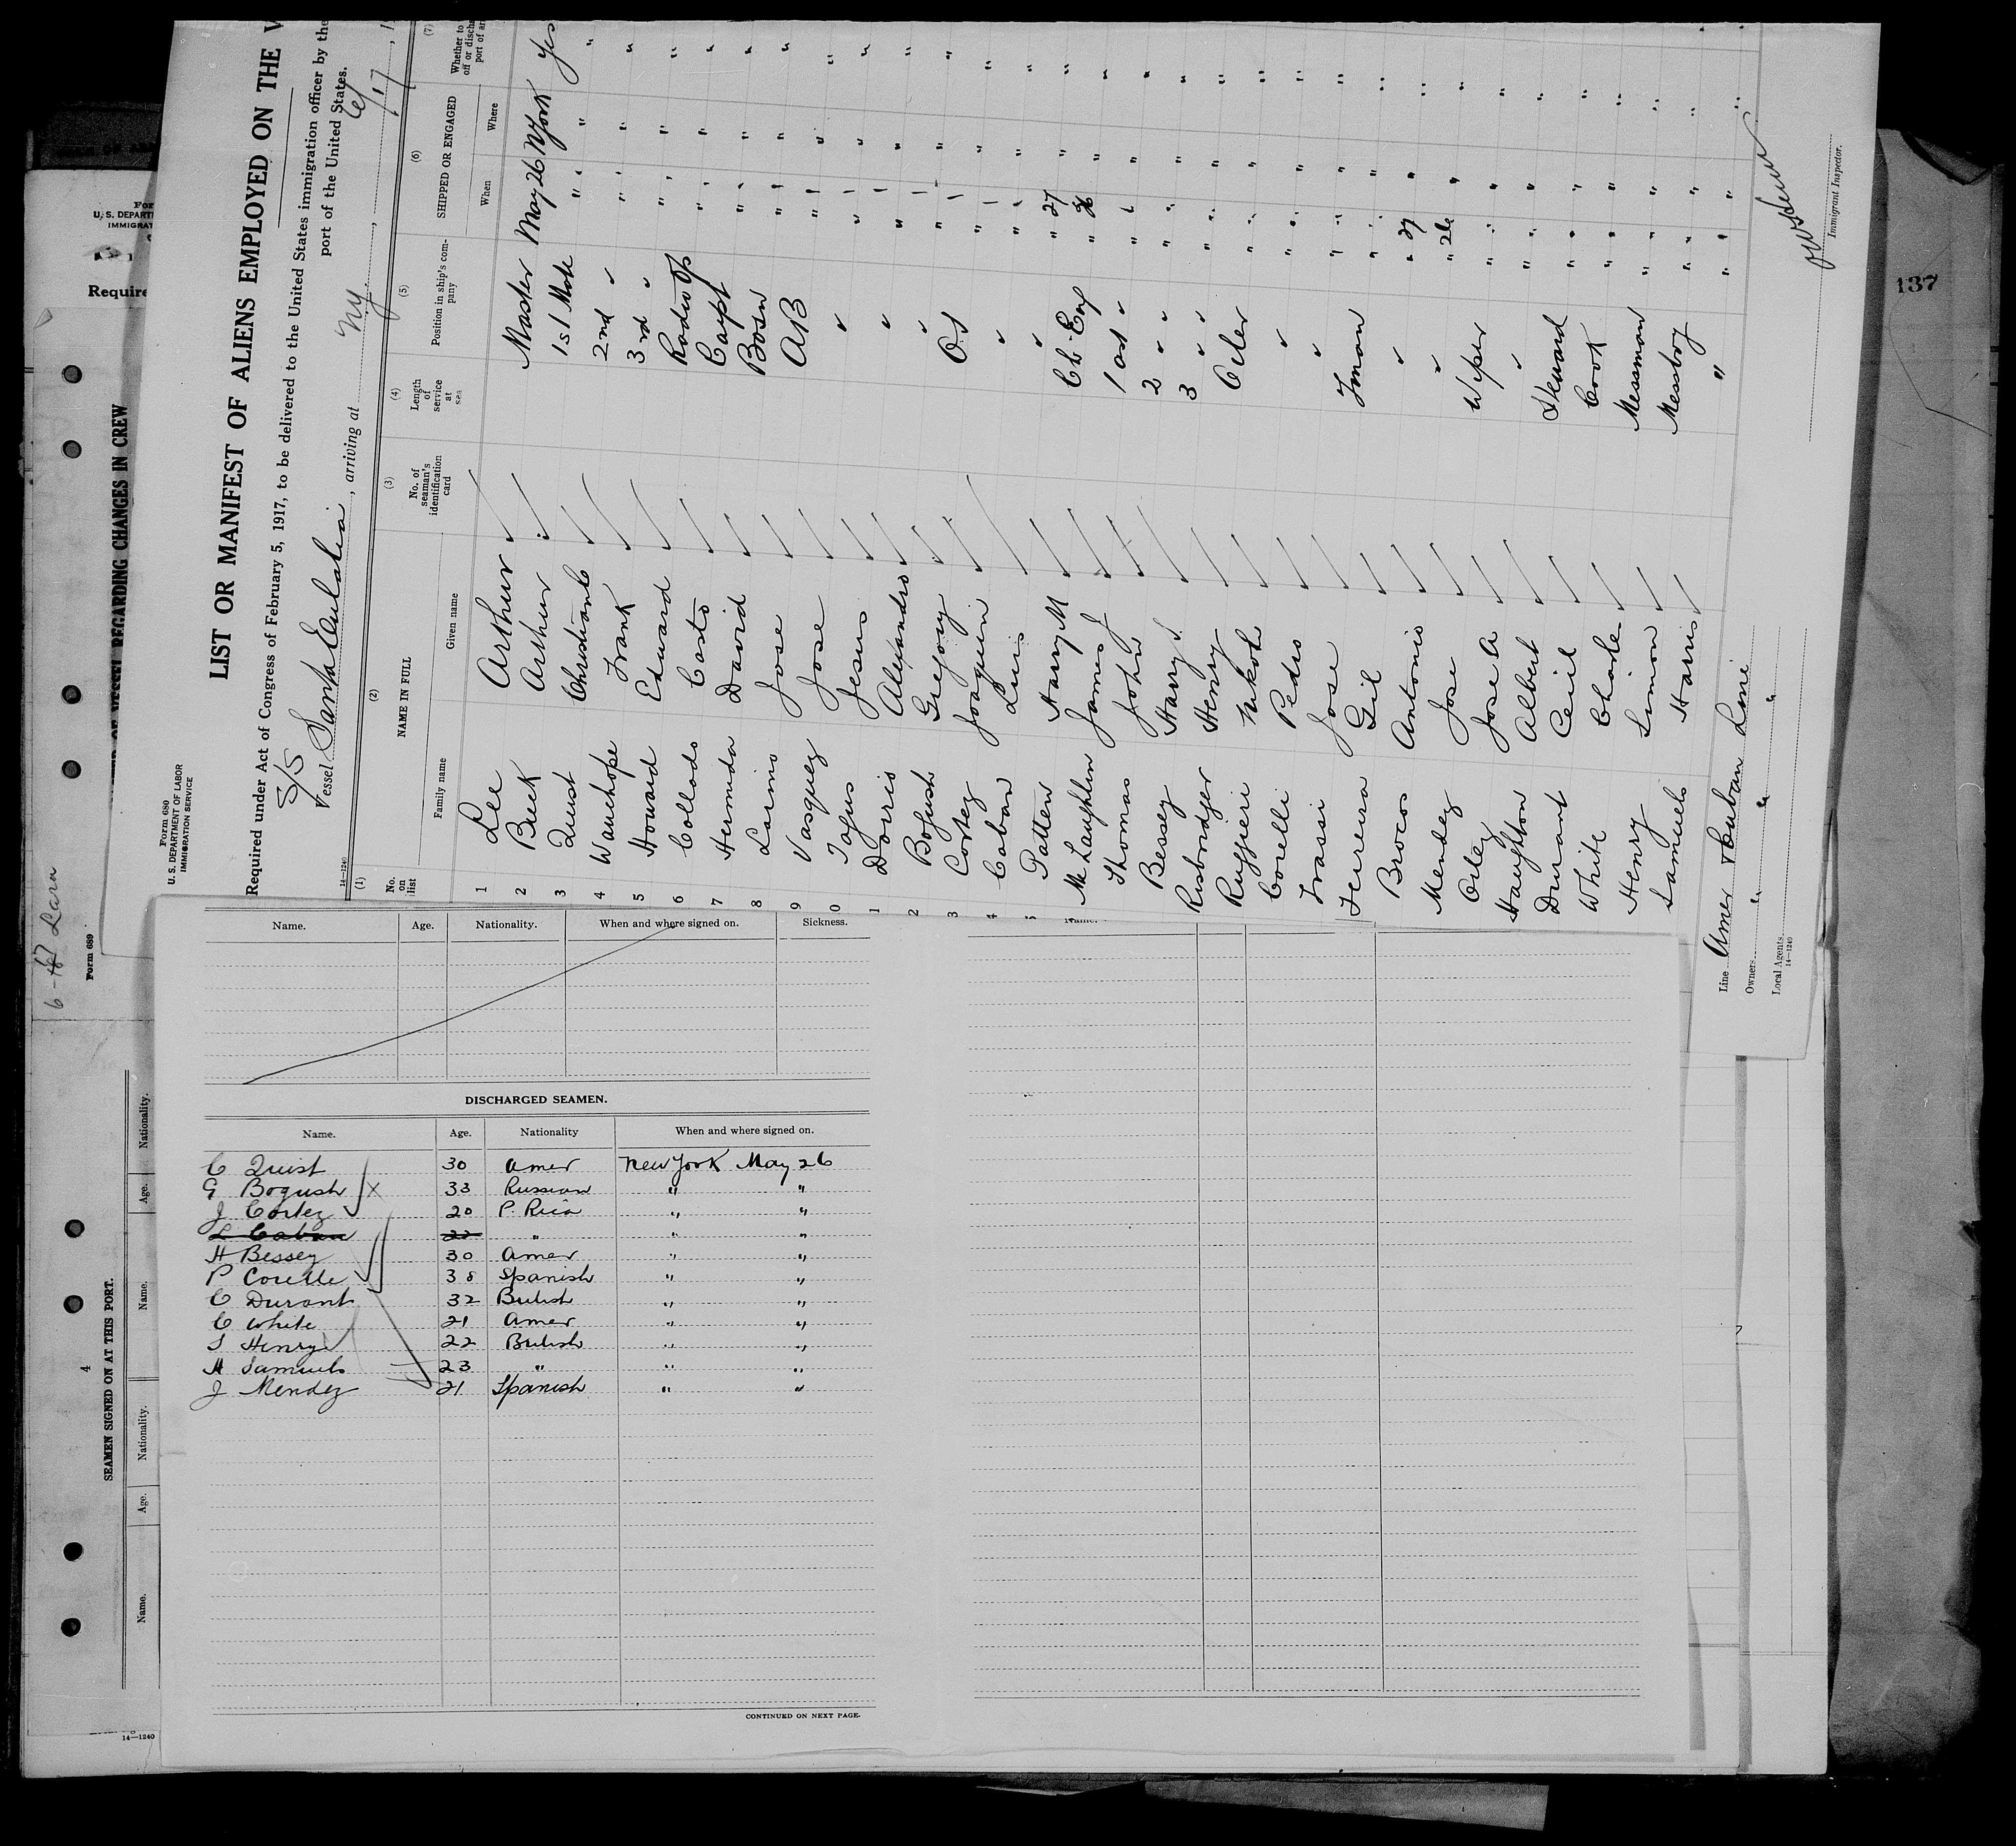 LIST OR MANIFEST OF ALIENS EMPLOYED ON THE
Required under Act of Congress of February 5, 1917, to be delivered to the United States immigration officer by the
port of the United States.
Form 680
U. S. DEPARTMENT OF LABOR
IMMIGRATION SERVICE
S/S
Vessel Santa Eulalia, arriving at NY, 6/17, 1
14—1240
(1) (2) (3) (4) (5) (6) (7)
No. on list NAME IN FULL No. of seaman's identification card Length of service at sea Position in ship's company SHIPPED OR ENGAGED Whether to
off or discha
port of ar
Family name Given name When Where
1 Lee Arthur Master May 26 NYork Yes
2 Buck Arthur 1st Mate " " " "
3 Quist Christian C 2nd " " " " "
4 Wauchope Frank 3rd " " " " "
5 Howard Edward Radio Op " " " "
6 Collado Casto Carpt " " " "
7 Hermida David Bosn " " " "
8 Larino Jose AB " " " "
9 Vasquez Jose " " " " "
0 Jesus " " " " "
1 Dorris Alejandro " " " " "
2 Bogush Gregory OS " " " "
3 Cortez Joaquin " " " " "
4 Caban Luis " " " " "
5 Patten Harry M Ch. Eng " 27 " "
McLaughlin James J 1 ast " " 26 " "
Thomas John 2 " " " " "
Bessey Harry S. 3 " " " " "
Risbordger Henry Oiler " " " "
Ruggieri " " " " "
Corelli Pedro " " " " "
Jose Fman " " " "
Ferreira Gil " " " " "
Brocos Antonio " " 27 " "
Mendez Jose Wiper " 26 " "
Jose A " " " " "
Haughton Albert Steward " " " "
Durant Cecil Cook " " " "
White Charle Messman " " " "
Henry Simon Messboy " " " "
Samuels Harris " " " " "
Line Amer & Cuban Line
Owners " " "
Local Agents
14—1240
Immigrant Inspector.
137
For
U. S. DEPARTM
IMMIGRAT
Require
REGARDING CHANGES IN CREW
6-17 Lara
Form 689
4
SEAMEN SIGNED ON AT THIS PORT.
Name. Age. Nationality. Name. Age. Nationality.
14—1240
Name. Age. Nationality. When and where signed on. Sickness.
DISCHARGED SEAMEN.
Name. Age. Nationality When and where signed on.
C Quist 30 Amer New York May 26
G Bogush X 33 Russian " "
J Cortez 20 P. Rico " "
L Caban 22 " " "
H Bessey 30 Amer " "
P Corelle 38 Spanish " "
C Durant 32 British " "
C White 21 Amer " "
S Henry 22 British " "
H Samuels 23 " " "
J Mendez 21 Spanish " "
CONTINUED ON NEXT PAGE.